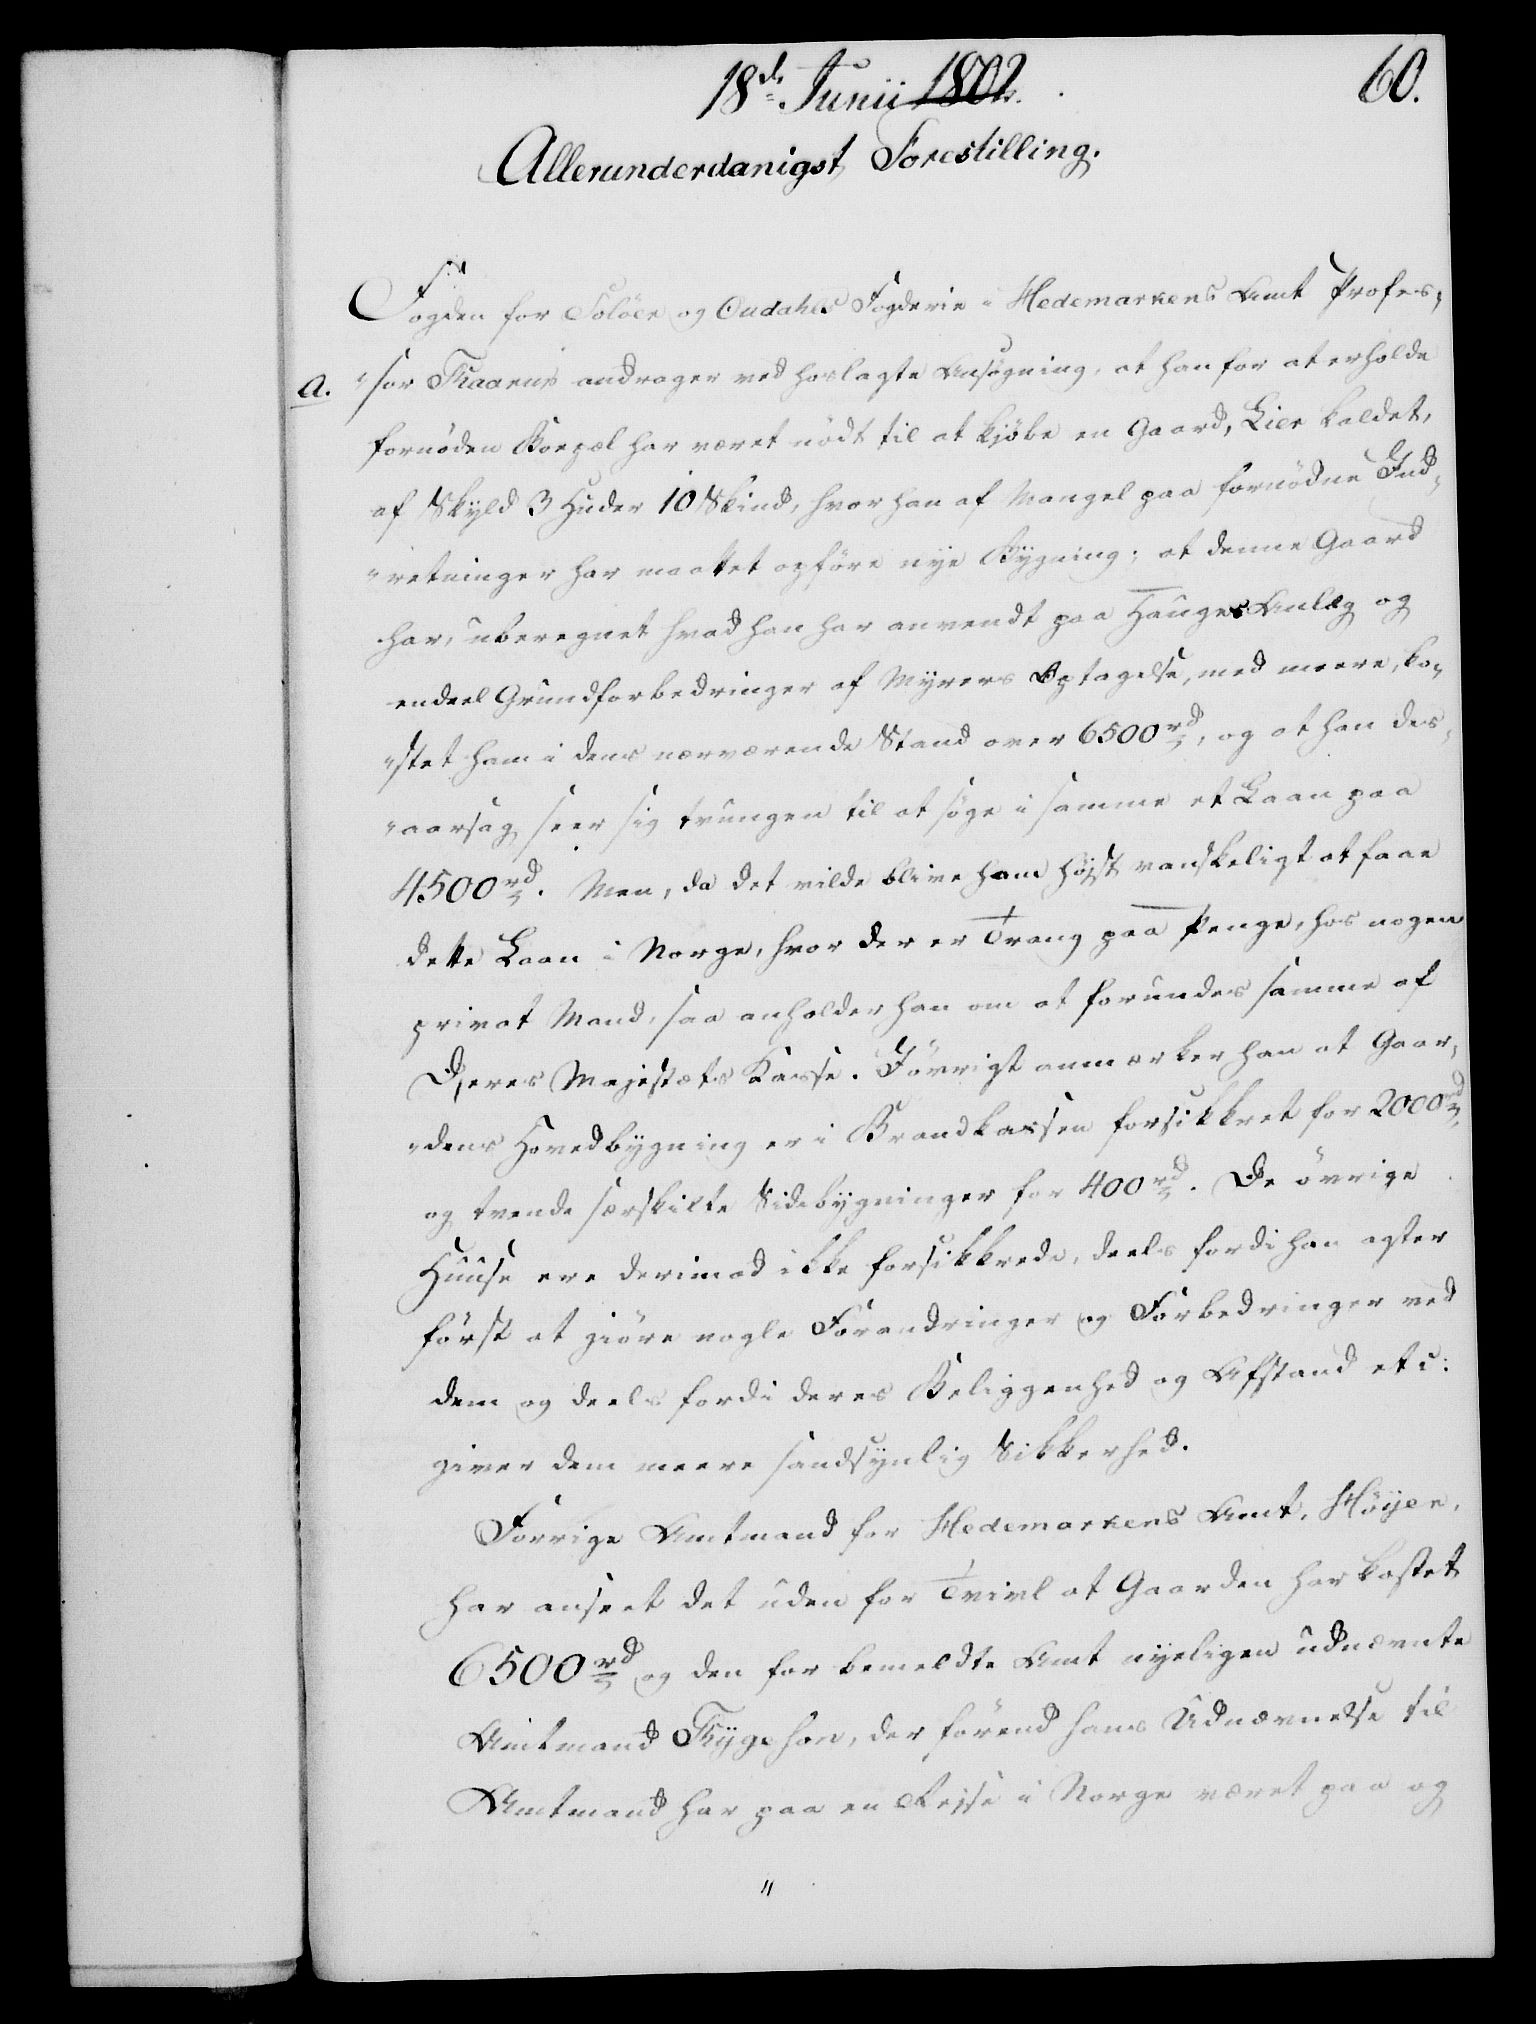 18de Junii 1802.
60.
Allerunderdanigst Forestilling.
Fogden for Soløer og Oudahls Fogderie i Hedemarkens Amt Profes-
a. "sor Thaarup andrager ved hoslagte Ansøgning, at han for at erholde
fornøden Boepæl har været nødt til at kjøbe en Gaard, Lier kaldet,
af Skyld 3 Huder 10 Skind, hvor han af Mangel paa fornødne Ind-
"retninger har maattet opføre nye Bygning; at denne Gaard
har, uberegnet hvad han har anvendt paa Hauges Anlæg og
endeel Grundforbedringer af Myrers Optagelse, med meere, ko-
"stet ham i dens nærværende Stand over 6500 rd, og at han des-
"aarsag seer sig tvungen til at søge i samme et Laan paa
4500 rd. Men, da det vilde blive ham høist vanskeligt at faae
dette Laan i Norge, hvor der er Trang paa Penge, hos nogen
privat Mand, saa anholder han om at forundes samme af
Deres Majestæts Kasse. Iøvrigt anmærker han at Gaar-
"dens Hovedbygning er i Brandkassen forsikkret for 2000 rd,
og tvende særskilte Sidebygninger for 400 rd. De øvrige
Huuse ere derimod ikke forsikkrede, deels fordi han agter
først at giøre nogle Forandringer og Forbedringer ved
dem og deels fordi deres Beliggenhed og Afstand etc:
giver dem meere sandsynlig Sikkerhed.
Forrige Amtmand for Hedemarkens Amt, Höyer,
har anseet det uden for Tvivl at Gaarden har kostet
6500 rd og den for bemeldte Amt nyeligen udnævnte
Amtmand Thygeson, der førend hans Udnævnelse til
Amtmand har paa en Rejse i Norge været paa og
"